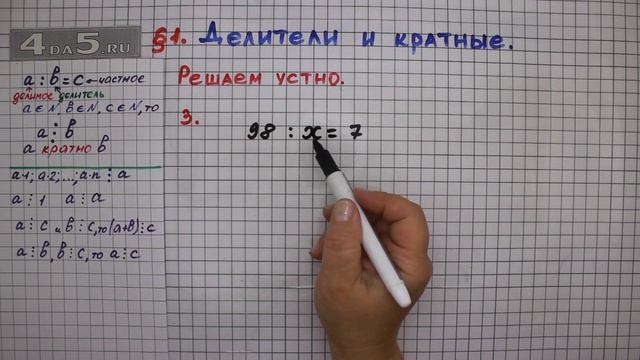 4DA5.RU
§1. Делители и кратные.
Решаем устно.
3.
98 : x = 7
a : b = c ← частное
делимое делитель
a ∈ N, b ∈ N, c ∈ N, то
a ⋮ b
a кратно b
a·1; a·2; ...; a·n ⋮ a
a ⋮ 1 a ⋮ a
a ⋮ c и b ⋮ c, то (a+b) ⋮ c
a ⋮ b, b ⋮ c, то a ⋮ c